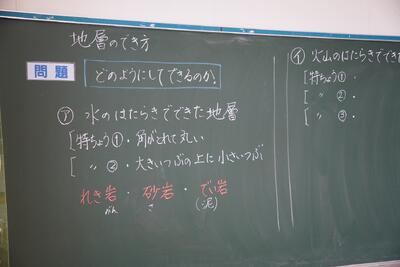 地層のでき方
問題
どのようにしてできるのか?
㋐ 水のはたらきでできた地層
[特ちょう① ・角がとれて丸い
[ 〃 ② ・大きいつぶの上に小さいつぶ
れき岩 ・ 砂岩 ・ でい岩
がん さ (泥)
㋑ 火山のはたらきででき
[特ちょう① ・
[ 〃 ② ・
[ 〃 ③ ・